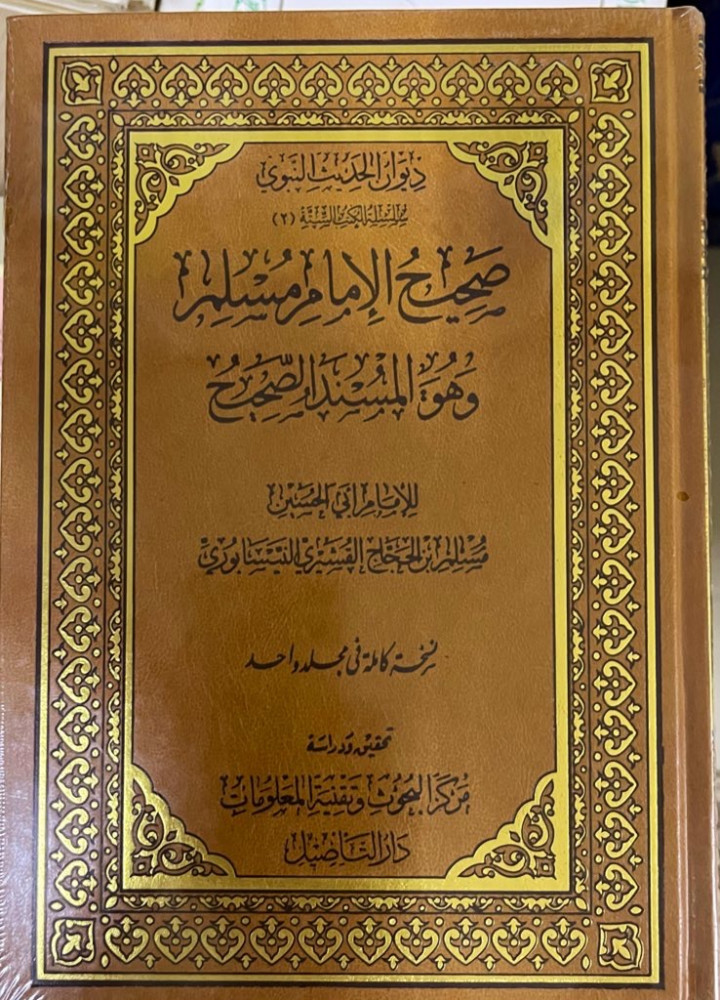 ديوان الحديث النبوي
سلسلة الكتب الستة (٢)
صَحِيحُ الإِمَامِ مُسْلِم
وَهُوَ المُسْنَدُ الصَّحِيحُ
للإمام أبي الحسين
مسلم بن الحجاج القشيري النيسابوري
نسخة كاملة في مجلد واحد
تحقيق ودراسة
مركز البحوث وتقنية المعلومات
دار التأصيل